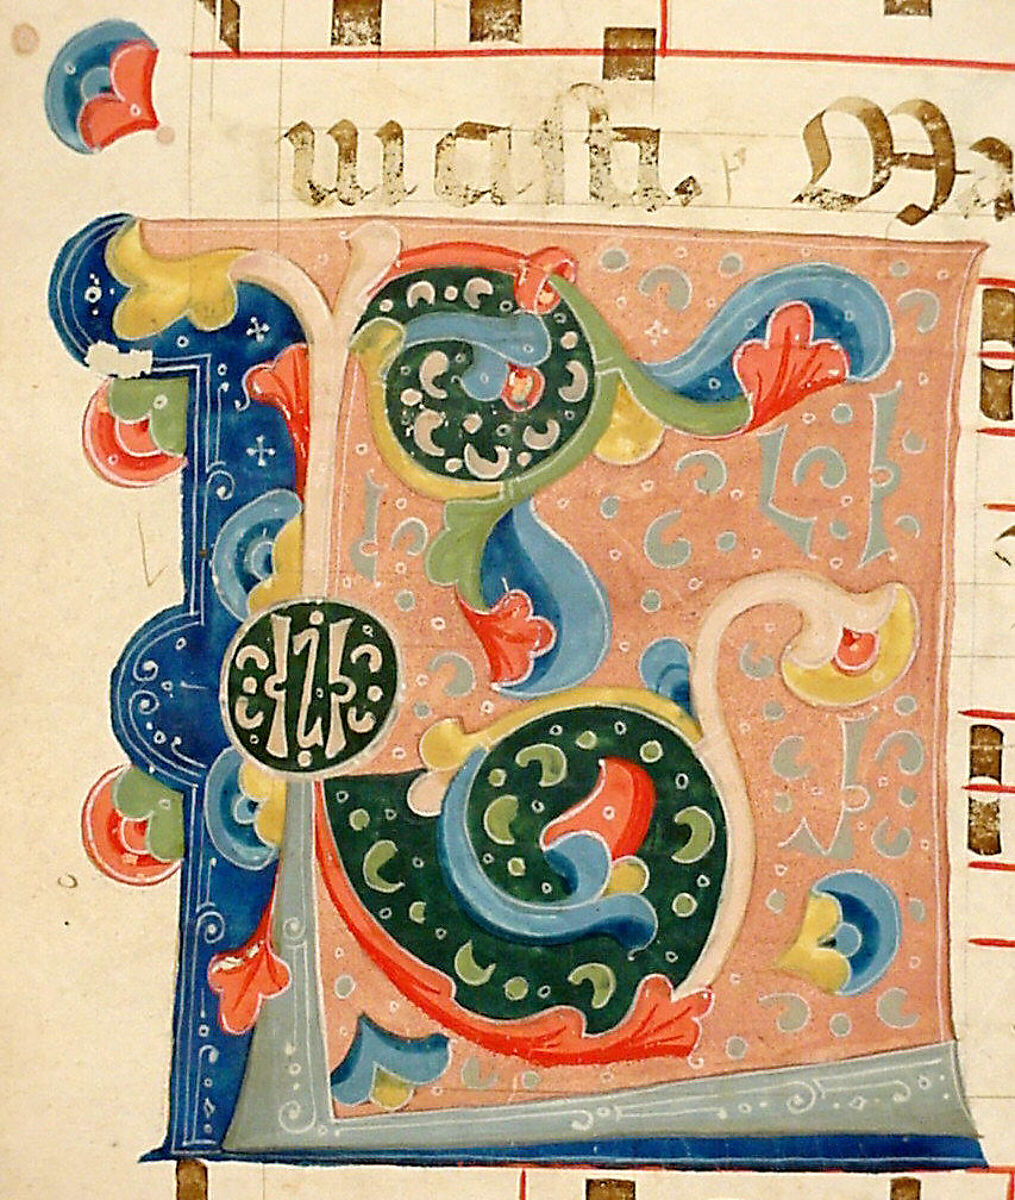 uaſti. Ma
L